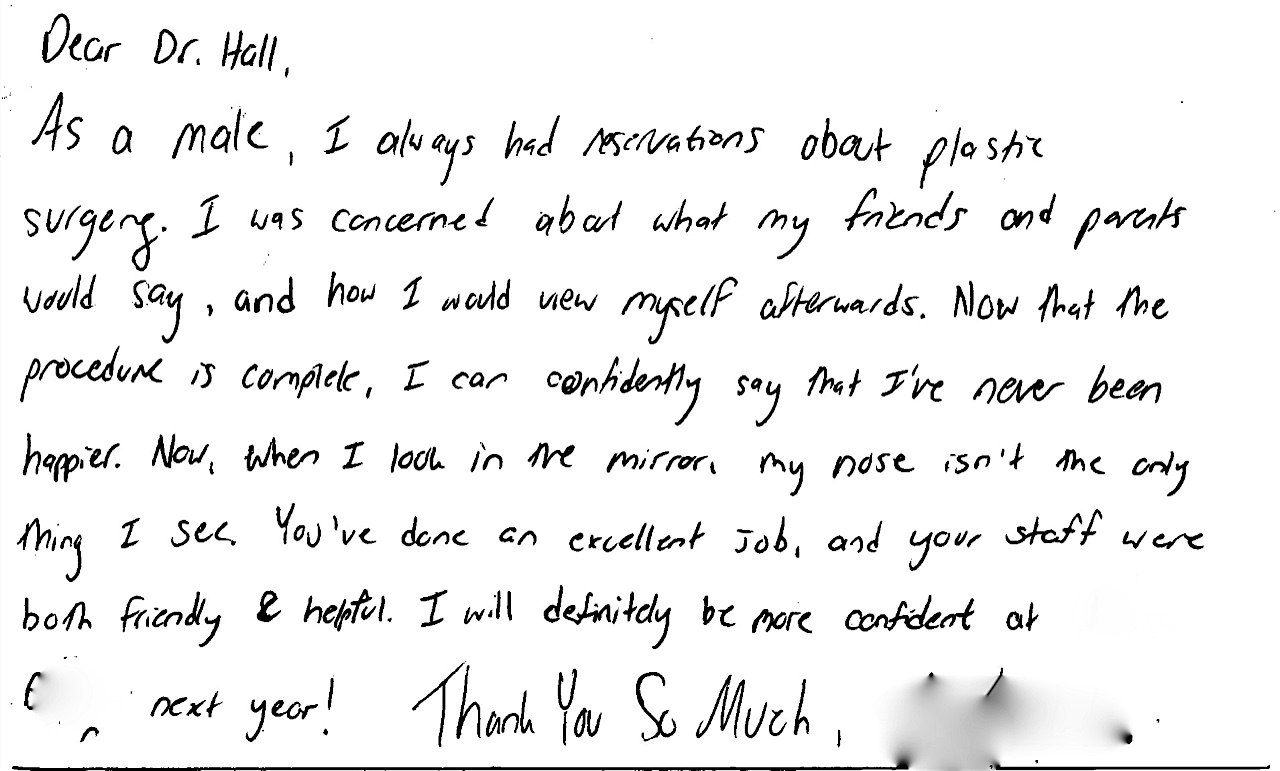 Dear Dr. Hall,
As a male, I always had reservations about plastic
surgery. I was concerned about what my friends and parents
would say, and how I would view myself afterwards. Now that the
procedure is complete, I can confidently say that I've never been
happier. Now, when I look in the mirror, my nose isn't the only
thing I see. You've done an excellent job, and your staff were
both friendly & helpful. I will definitely be more confident at
next year! Thank You So Much,